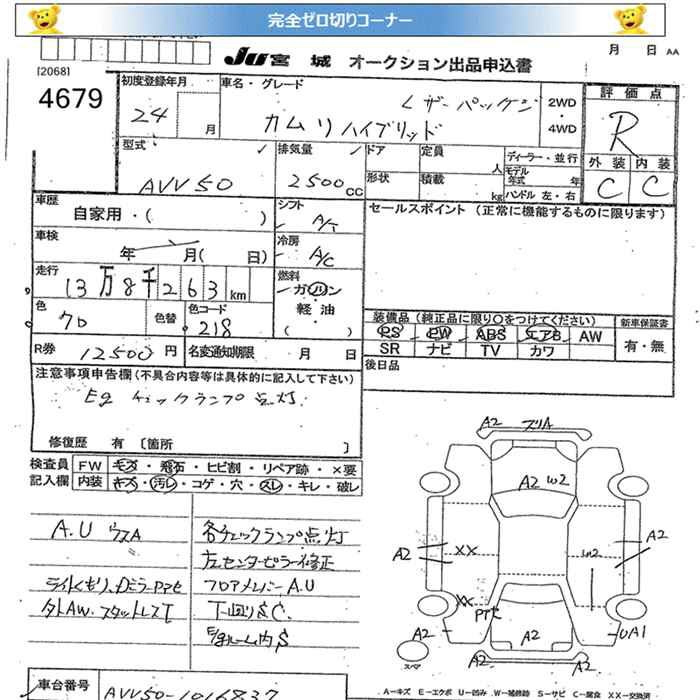 完全ゼロ切りコーナー
JU宮城 オークション出品申込書
月 日 AA
[2068]
4679
初度登録年月
24 月
車名・グレード
レザーパッケジ
カムリハイブリッド
2WD
・
4WD
評価点
R
外装 内装
C C
型式
AVV50
排気量
2500 CC
ドア
定員
人
形状
積載
kg
ディーラー・並行
モデル年式 年
ハンドル 左・右
車歴
自家用・( )
シフト
A/T
セールスポイント (正常に機能するものに限ります)
車検
年 月( 日)
冷房
A/C
走行
13万8千263km
燃料
ガソリン
・
軽油
( )
色
70
色替
色コード
218
装備品 (純正品に限り〇をつけてください)
PS PW ABS エアB AW
SR ナビ TV カワ
新車保証書
有・無
R券 12500円
名変通知期限 月 日
後日品
注意事項申告欄(不具合内容等は具体的に記入して下さい)
Eg チェックランプ点灯
修復歴 有 〔箇所 〕
検査員記入欄
FW キズ・飛石・ヒビ割・リペア跡・×要
内装 キズ・汚レ・コゲ・穴・スレ・キレ・破レ
A.U ウスA
各チェックランプ点灯
左センターピラー修正
ライトくもり、DミラーPアセ
フロアメンバーA.U
外AW.スタットレスI
下回りS.C.
Egルーム内S
A2 ズリA
A2 W2
A2 XX
A2
W2
XX
Pアセ
A2
A2
UA1
A2
スペア
車台番号 AVV50-1016837
A-キズ E-エクボ U-凹み W-補修跡 S-サビ C-腐食 XX-交換済